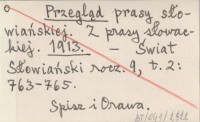 Przegląd prasy sło-
wiańskiej. Z prasy słowac-
kiej. 1913. – Świat
Słowiański rocz. 9, t. 2:
763-765.
Spisz i Orawa.